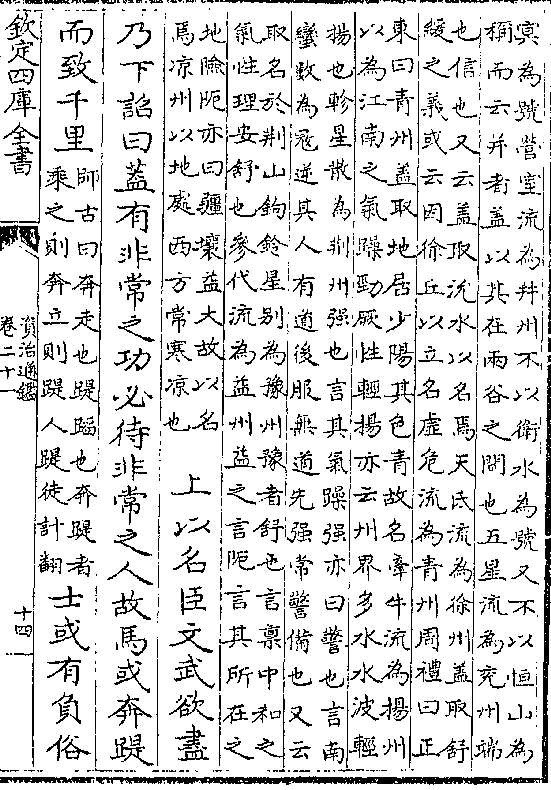 㝠為號營室流為幷州不以衛水為號又不以恒山為
稱而云幷者盖以其在兩谷之間也五星流為兖州端
也信也又云盖取沇水以名焉天氐流為徐州盖取舒
緩之義或云因徐丘以立名虚危流為青州周禮曰正
東曰青州盖取地居少陽其色青故名牽牛流為揚州
以為江南之氣躁勁厥性輕揚亦云州界多水水波輕
揚也軫星散為荆州强也言其氣躁强亦曰警也言南
蠻數為冦逆其人有道後服無道先强常警備也又云
取名於荆山鉤鈐星别為豫州豫者舒也言禀中和之
氣性理安舒也參代流為益州益之言阨言其所在之
地險阨亦曰疆壤益大故以名
焉凉州以地處西方常寒凉也
上以名臣文武欲盡
乃下詔曰蓋有非常之功必待非常之人故馬或奔踶
而致千里
師古曰奔走也踶蹋也奔踶者
乘之則奔立則踶人踶徒計翻
士或有負俗
欽定四庫全書
資治通鑑
卷二十一
十四